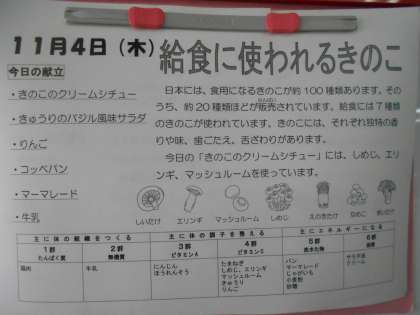 11月4日（木）
給食に使われるきのこ
今日の献立
・きのこのクリームシチュー
・きゅうりのバジル風味サラダ
・りんご
・コッペパン
・マーマレード
・牛乳
日本には、食用になるきのこが約100種類あります。その
うち、約20種類ほどが販売されています。給食には7種類
のきのこが使われています。きのこには、それぞれ独特の香
りや味、歯ごたえ、舌ざわりがあります。
今日の「きのこのクリームシチュー」には、しめじ、エリ
ンギ、マッシュルームを使っています。
しいたけ エリンギ マッシュルーム しめじ えのきたけ なめこ まいたけ
主に体の組織をつくる 主に体の調子を整える 主にエネルギーになる
1群 2群 3群 4群 5群 6群
たんぱく質 無機質 ビタミンA ビタミンC 炭水化物 脂質
鶏肉 牛乳 にんじん たまねぎ パン
ほうれんそう しめじ、エリンギ マーマレード クリーム
マッシュルーム じゃがいも
きゅうり 小麦粉
りんご 砂糖